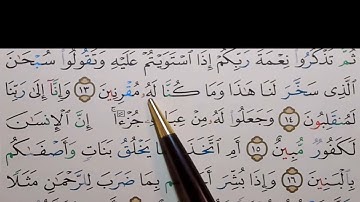 ثُمَّ تَذْكُرُوا۟ نِعْمَةَ رَبِّكُمْ إِذَا ٱسْتَوَيْتُمْ عَلَيْهِ وَتَقُولُوا۟ سُبْحَٰنَ
ٱلَّذِى سَخَّرَ لَنَا هَٰذَا وَمَا كُنَّا لَهُۥ مُقْرِنِينَ ١٣ وَإِنَّآ إِلَىٰ رَبِّنَا
لَمُنقَلِبُونَ ١٤ وَجَعَلُوا۟ لَهُۥ مِنْ جُزْءًا ۚ إِنَّ ٱلْإِنسَٰنَ
لَكَفُورٌ مُّبِينٌ ١٥ أَمِ ٱتَّخَذَ يَخْلُقُ بَنَاتٍ وَأَصْفَىٰكُم
بِٱلْبَنِينَ ١٦ وَإِذَا بُشِّرَ بِمَا ضَرَبَ لِلرَّحْمَٰنِ مَثَلًا